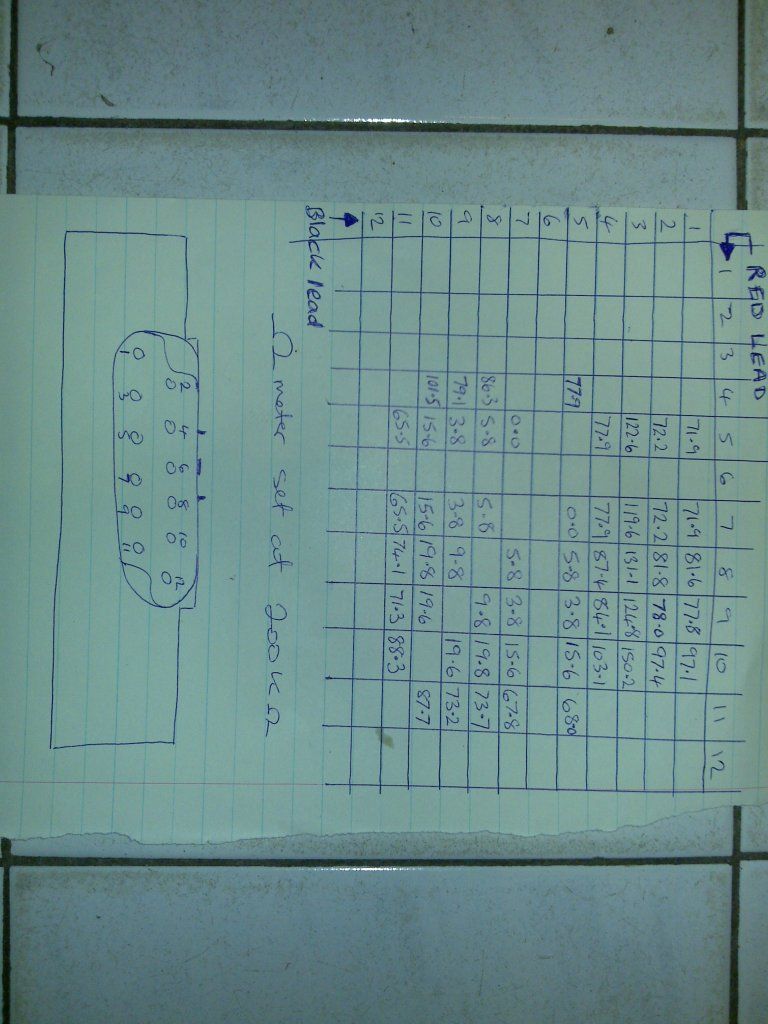 RED LEAD
1 2 3 4 5 6 7 8 9 10 11 12
1 71.9 71.9 81.6 77.8 97.1
2 72.2 72.2 81.8 78.0 97.4
3 122.6 119.6 131.1 124.8 150.2
4 77.9 77.9 87.4 84.1 103.1
5 77.9 0.0 5.8 3.8 15.6 68.0
6
7 0.0 5.8 3.8 15.6 67.8
8 86.3 5.8 5.8 9.8 19.8 73.7
9 79.1 3.8 3.8 9.8 19.6 73.2
10 101.5 15.6 15.6 19.8 19.6 87.7
11 65.5 65.5 74.1 71.3 88.3
12
Black lead
Ω meter set at 200K Ω
2 4 6 8 10 12
1 3 5 7 9 11